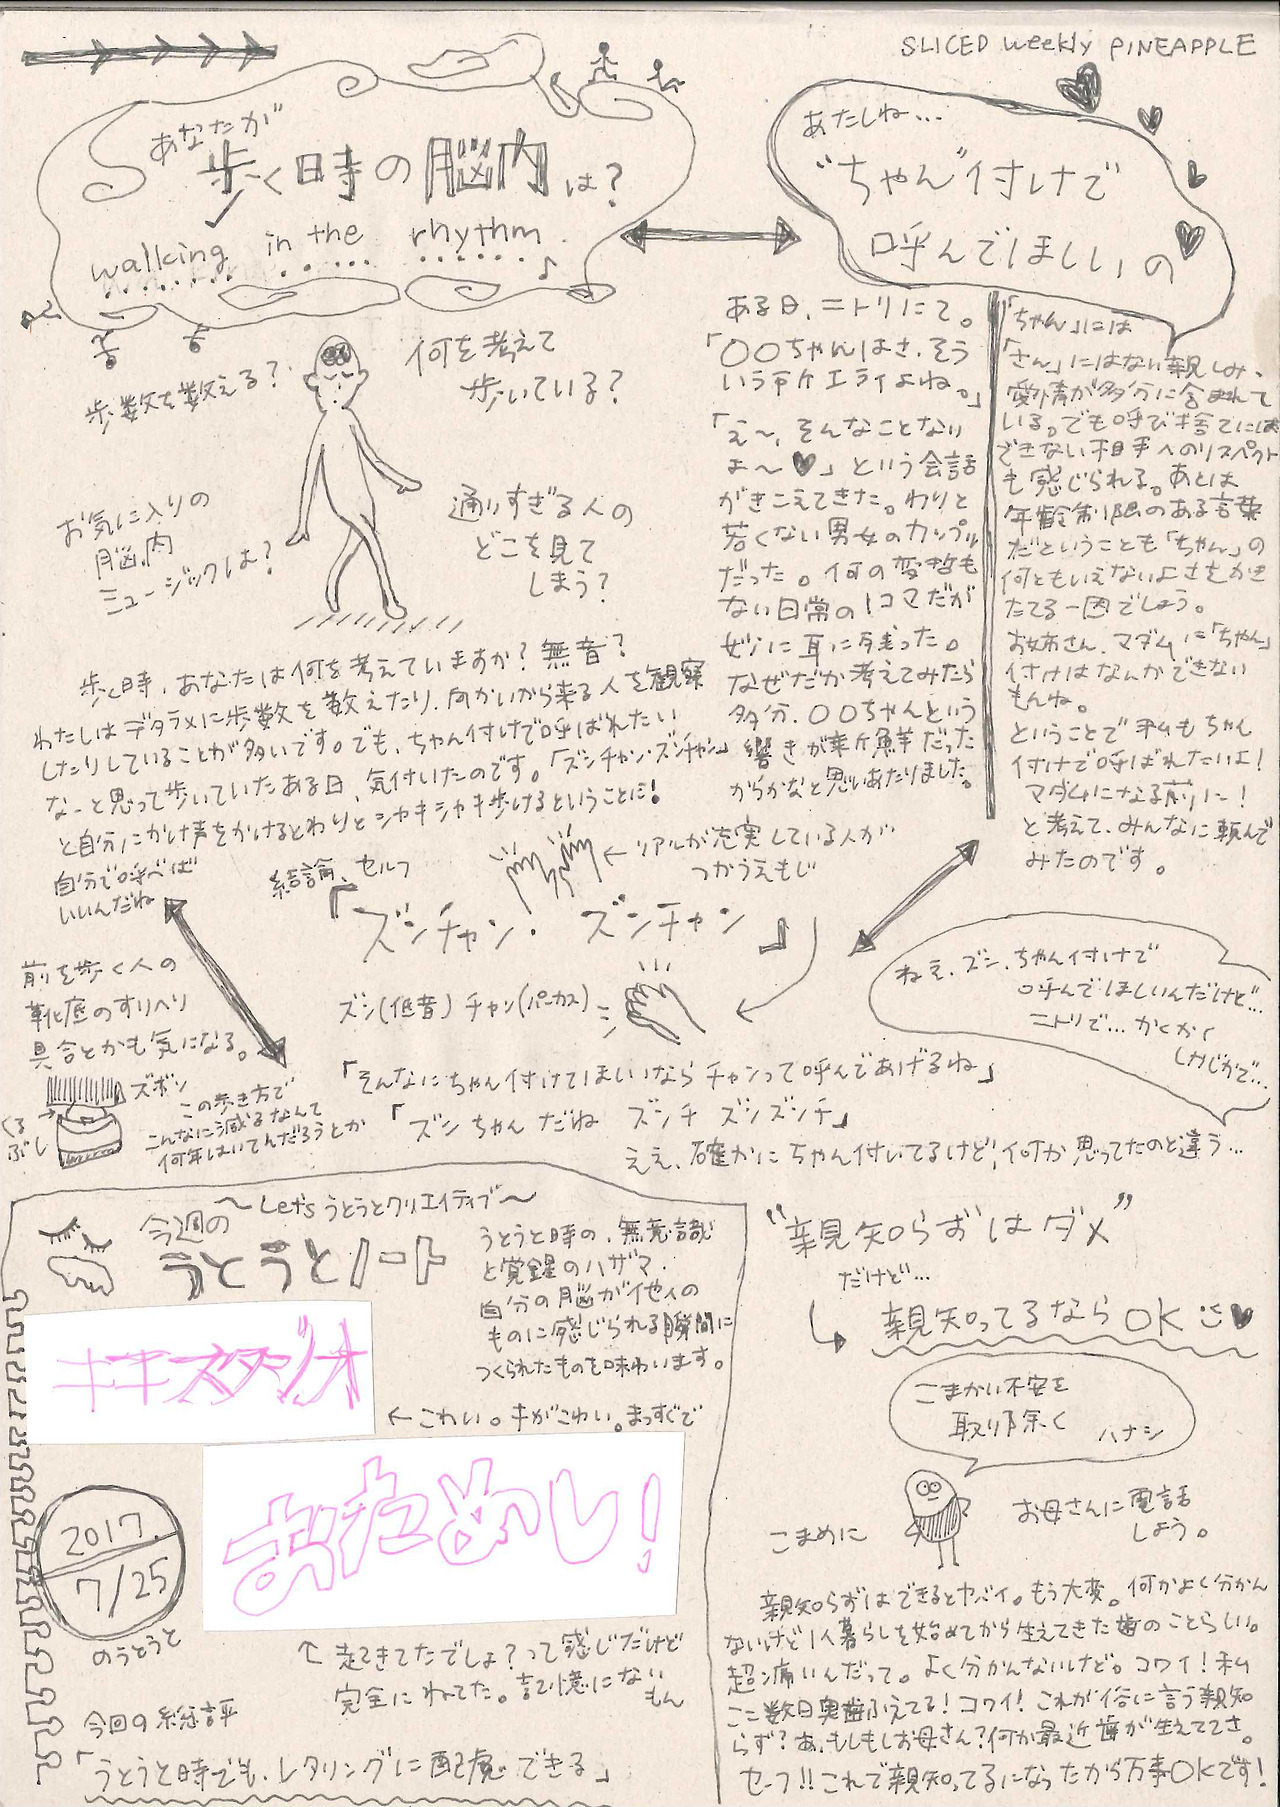 SLICED weekly PINEAPPLE
あなたが
歩く時の脳内は?
walking in the rhythm
歩数を数える?
何を考えて
歩いている?
お気に入りの
脳内
ミュージックは?
通りすぎる人の
どこを見て
しまう?
歩く時、あなたは何を考えていますか?無音?
わたしはデタラメに歩数を数えたり、向かいから来る人を観察
したりしていることが多いです。でも、ちゃん付けで呼ばれたい
な〜と思って歩いていたある日、気付いたのです。「ズンチャン・ズンチャン」
と自分にかけ声をかけるとわりとシャキシャキ歩けるということに!
自分で呼べば
いいんだね
結論、セルフ
「ズンチャン・ズンチャン」
←リアルが充実している人が
つかうえもじ
ズン(低音)チャン(パーカス)
前を歩く人の
靴底のすりへり
具合とかも気になる。
ズボン
くるぶし
この歩き方で
こんなに減るなんて
何年はいてんだろうとか
あたしね…
“ちゃん”付けで
呼んでほしいの
ある日、ニトリにて。
「〇〇ちゃんはさ、そう
いう所エライよね。」
「え〜、そんなことない
よ〜♥」という会話
がきこえてきた。わりと
若くない男女のカップル
だった。何の変哲も
ない日常の1コマだが
妙に耳に残った。
なぜだか考えてみたら
多分、〇〇ちゃんという
響きが新鮮だった
からかなと思いあたりました。
「ちゃん」には
「さん」にはない親しみ、
愛情が多分に含まれて
いる。でも呼び捨てには
できない相手へのリスペクト
も感じられる。あとは
年齢制限のある言葉
だということも「ちゃん」の
何ともいえないよさをかき
たてる一因でしょう。
お姉さん、マダムに「ちゃん」
付けはなんかできない
もんね。
ということで私もちゃん
付けで呼ばれたいよ!
マダムになる前に!
と考えて、みんなに頼んで
みたのです。
ねえ、ズン、ちゃん付けで
呼んでほしいんだけど…
ニトリで…かくかく
しかじかで…
「そんなにちゃん付けてほしいならチャンって呼んであげるね」
「ズンちゃんだね ズンチ ズンズンチ」
ええ、確かにちゃん付いてるけど、何か思ってたのと違う…
〜Let's うとうとクリエイティブ〜
今週の
うとうとノート
うとうと時の、無意識
と覚醒のハザマ、
自分の脳が他人の
ものに感じられる瞬間に
つくられたものを味わいます。
キキスタジオ
←こわい。キがこわい。まっすぐで
おためし!
2017.
7/25
のうとうと
↑起きてたでしょ?って感じだけど
完全にねてた。記憶にない
もん
今回の総評
「うとうと時でも、レタリングに配慮できる」
“親知らずはダメ”
だけど…
親知ってるならOK
こまかい不安を
取り除く ハナシ
こまめに
お母さんに電話
しよう。
親知らずはできるとヤバイ。もう大変。何かよく分かん
ないけど1人暮らしを始めてから生えてきた歯のことらしい。
超痛いんだって。よく分かんないけど。コワイ!私
ここ数日奥歯ふえてる!コワイ!これが俗に言う親知
らず?あ、もしもしお母さん?何か最近歯が生えててさ。
セーフ!!これで親知ってるになったから万事OKです!